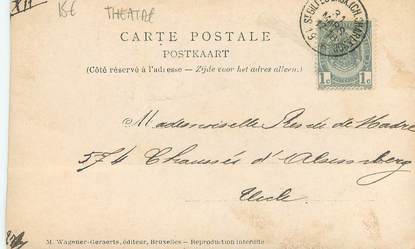 15€ THEATRE
CARTE POSTALE
POSTKAART
(Côté réservé à l'adresse — Zijde voor het adres alleen.)
1c 1c
Mademoiselle de
574 Chaussée d'Alsemberg
Uccle
M. Wagener-Geraerts, éditeur, Bruxelles — Reproduction interdite